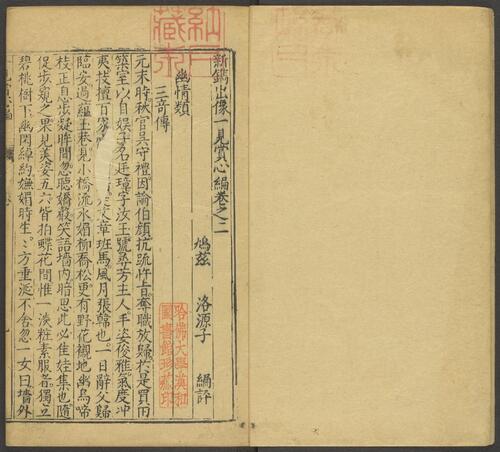 新鐫出像一見賞心編卷之二
鳩茲 洛源子 編評
幽情類
三奇傳
元末時秋官吳守禮因諭伯顏抗疏忤旨奪職放歸於是買
築室以自娛子名廷璋字汝玉號尋芳主人丰姿俊雅氣度冲
夷技擅百家 文章班馬風月張韓也一日辭父歸
臨安過蘊玉巷見小橋流水媚柳喬松更有野花襯地幽鳥啼
枝正息步凝眸間忽聽嬌聲笑語墻內暗思此必佳娃集也隨
促步窺之果見美姿五六皆拍蝶花間惟一淡粧素服者獨立
碧桃樹下幽閑綽約嫵媚時生方垂涎不舍忽一女曰墻外
哈佛大學漢和圖書館珍藏印